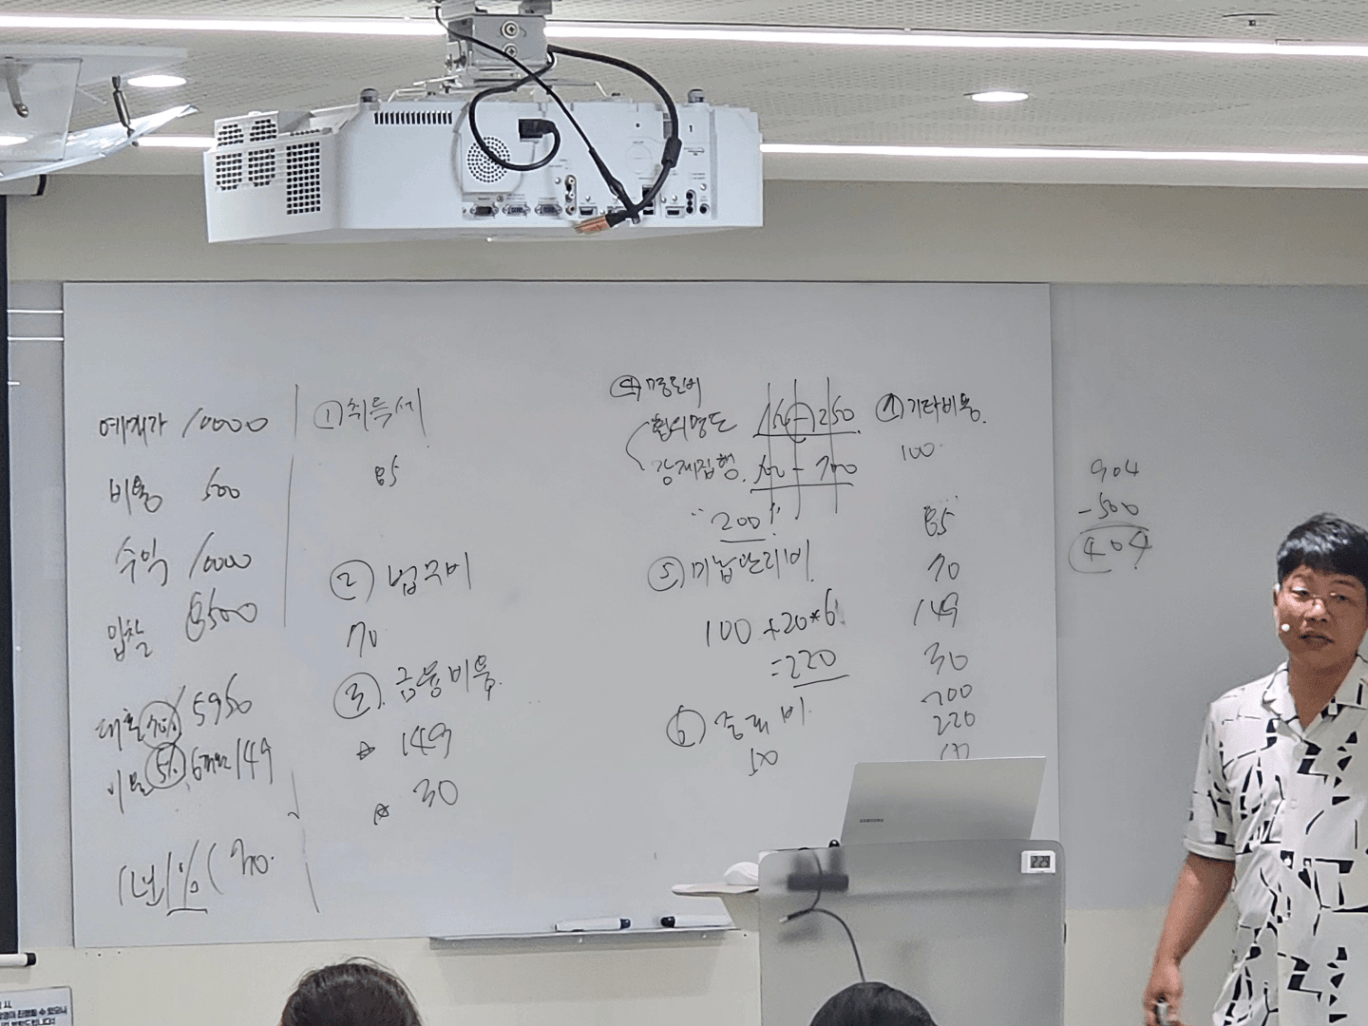 예가 10000
비용 500
수익 1000
입찰 8500
대출 70% 5950
이율 5% 6개월 149
1년 1% ( 30.
① 취득세
85
② 법무비
70
③ 금융비용.
☆ 149
☆ 30
④ 명도비
합의명도 150-250
강제집행.
"200"
⑤ 미납관리비
100 + 20*6
=220
⑥ 중개비
50
⑦ 기타비용.
100
85
70
149
30
200
220
904
-500
404
SAMSUNG